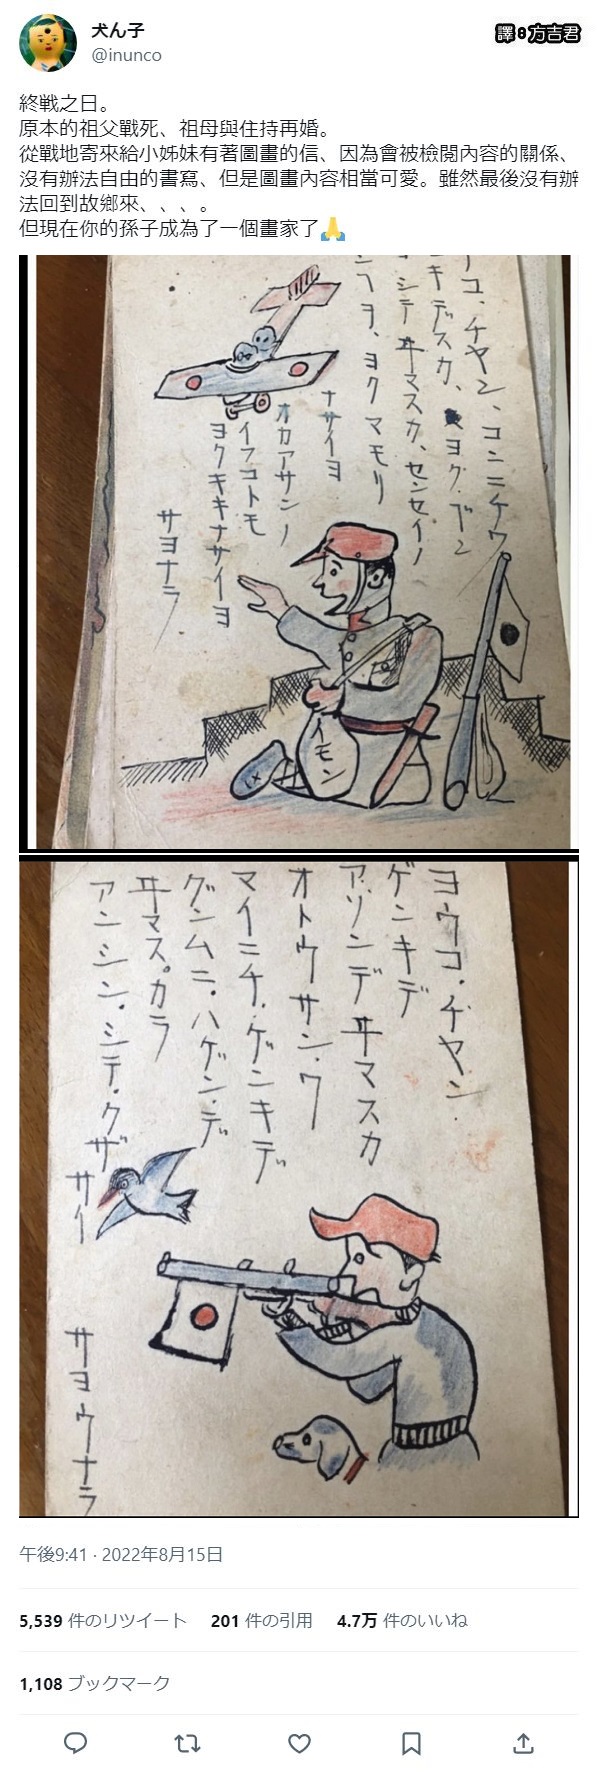 犬ん子
@inunco
譯8方吉君
終戦之日。
原本的祖父戰死、祖母與住持再婚。
從戰地寄來給小姊妹有著圖畫的信、因為會被檢閱內容的關係、
沒有辦法自由的書寫、但是圖畫內容相當可愛。雖然最後沒有辦
法回到故鄉來、、、。
但現在你的孫子成為了一個畫家了🙏
コ、チヤン、コンニチワ
キデスカ、ヨクブン
シテヰマスカ、センセイノ
ヲ、ヨクマモリ
ナサイヨ
オカアサンノ
イフコトモ
ヨクキキナサイヨ
サヨナラ
イモン
ヨウコ・チヤン
ゲンキデ
アソンデヰマスカ
オトウサン・ワ
マイニチ・ゲンキデ
グンムニ・ハゲンデ
ヰマス。カラ
アンシン・シテ・クザ
サイ
サヨウナラ
午後9:41 · 2022年8月15日
5,539 件のリツイート 201 件の引用 4.7万 件のいいね
1,108 ブックマーク